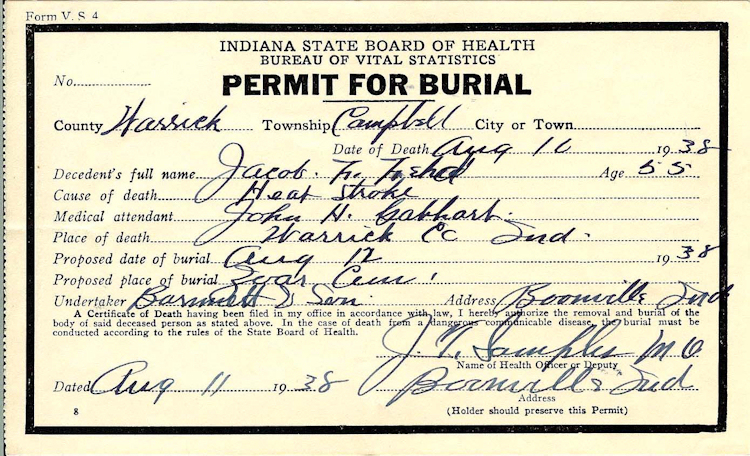 Form V. S. 4
INDIANA STATE BOARD OF HEALTH
BUREAU OF VITAL STATISTICS
No. PERMIT FOR BURIAL
County Warrick Township Campbell City or Town
Date of Death Aug 10 1938
Decedent's full name Jacob F. Age 55
Cause of death Heat Stroke
Medical attendant John H. Gabhart.
Place of death Warrick Co Ind.
Proposed date of burial Aug 12 1938
Proposed place of burial Cem.
Undertaker & Son Address Boonville Ind
A Certificate of Death having been filed in my office in accordance with law, I hereby authorize the removal and burial of the
body of said deceased person as stated above. In the case of death from a dangerous communicable disease, the burial must be
conducted according to the rules of the State Board of Health.
J. T. Samples M D
Name of Health Officer or Deputy
Dated Aug 11 1938 Boonville Ind
Address
8 (Holder should preserve this Permit)